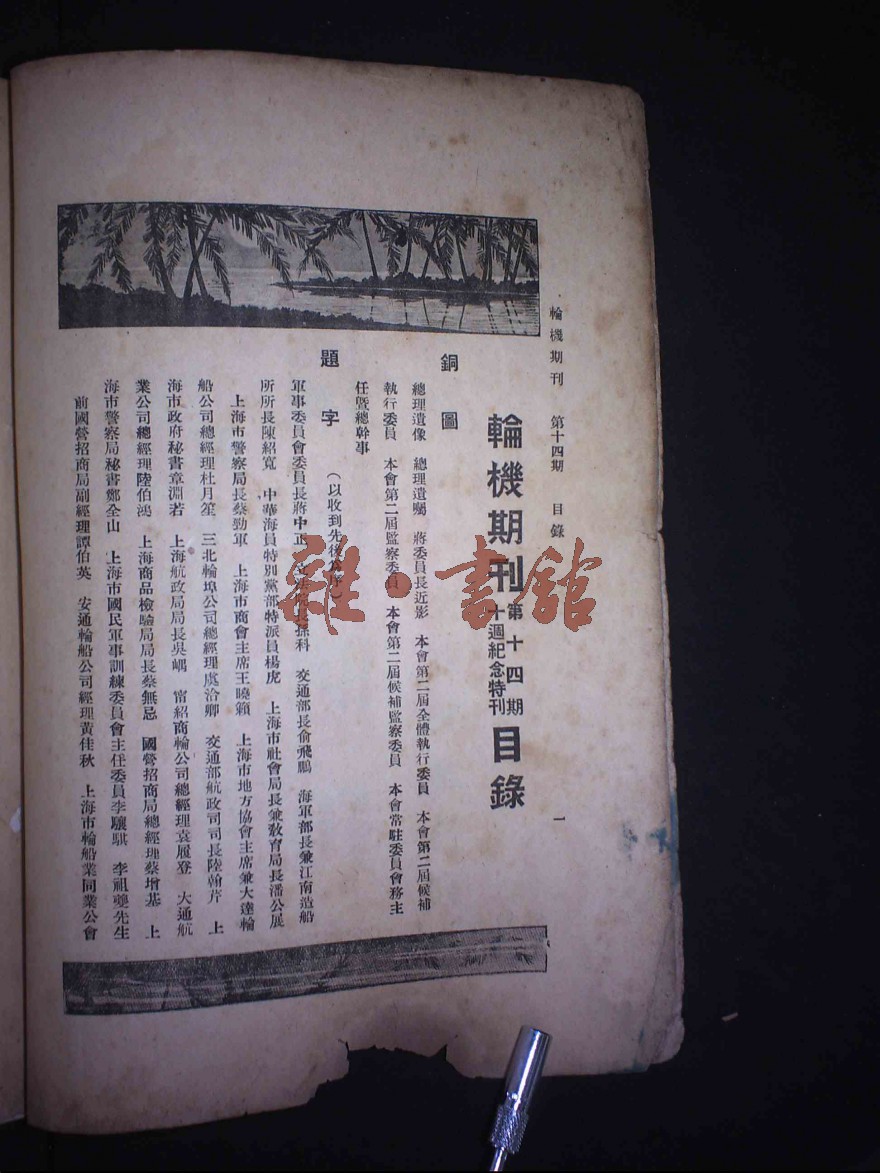 輪機期刊 第十四期 目錄 一
輪機期刊 第十四期 十週紀念特刊 目錄
銅圖
總理遺像 總理遺囑 蔣委員長近影 本會第二屆全體執行委員 本會第二屆候補
執行委員 本會第二屆監察委員 本會第二屆候補監察委員 本會常駐委員會務主
任暨總幹事
題字 (以收到先後為序)
軍事委員會委員長蔣中正 立法院長孫科 交通部長俞飛鵬 海軍部長兼江南造船
所所長陳紹寬 中華海員特別黨部特派員楊虎 上海市社會局長兼敎育局長潘公展
上海市警察局長蔡勁軍 上海市商會主席王曉籟 上海市地方協會主席兼大達輪
船公司總經理杜月笙 三北輪埠公司總經理虞洽卿 交通部航政司司長陸翰芹 上
海市政府秘書章淵若 上海航政局局長吳嵎 甯紹商輪公司總經理袁履登 大通航
業公司總經理陸伯鴻 上海商品檢驗局局長蔡無忌 國營招商局總經理蔡增基 上
海市警察局秘書鄭全山 上海市國民軍事訓練委員會主任委員李驤騏 李祖夔先生
前國營招商局副經理譚伯英 安通輪船公司經理黃佳秋 上海市輪船業同業公會
雜·書館